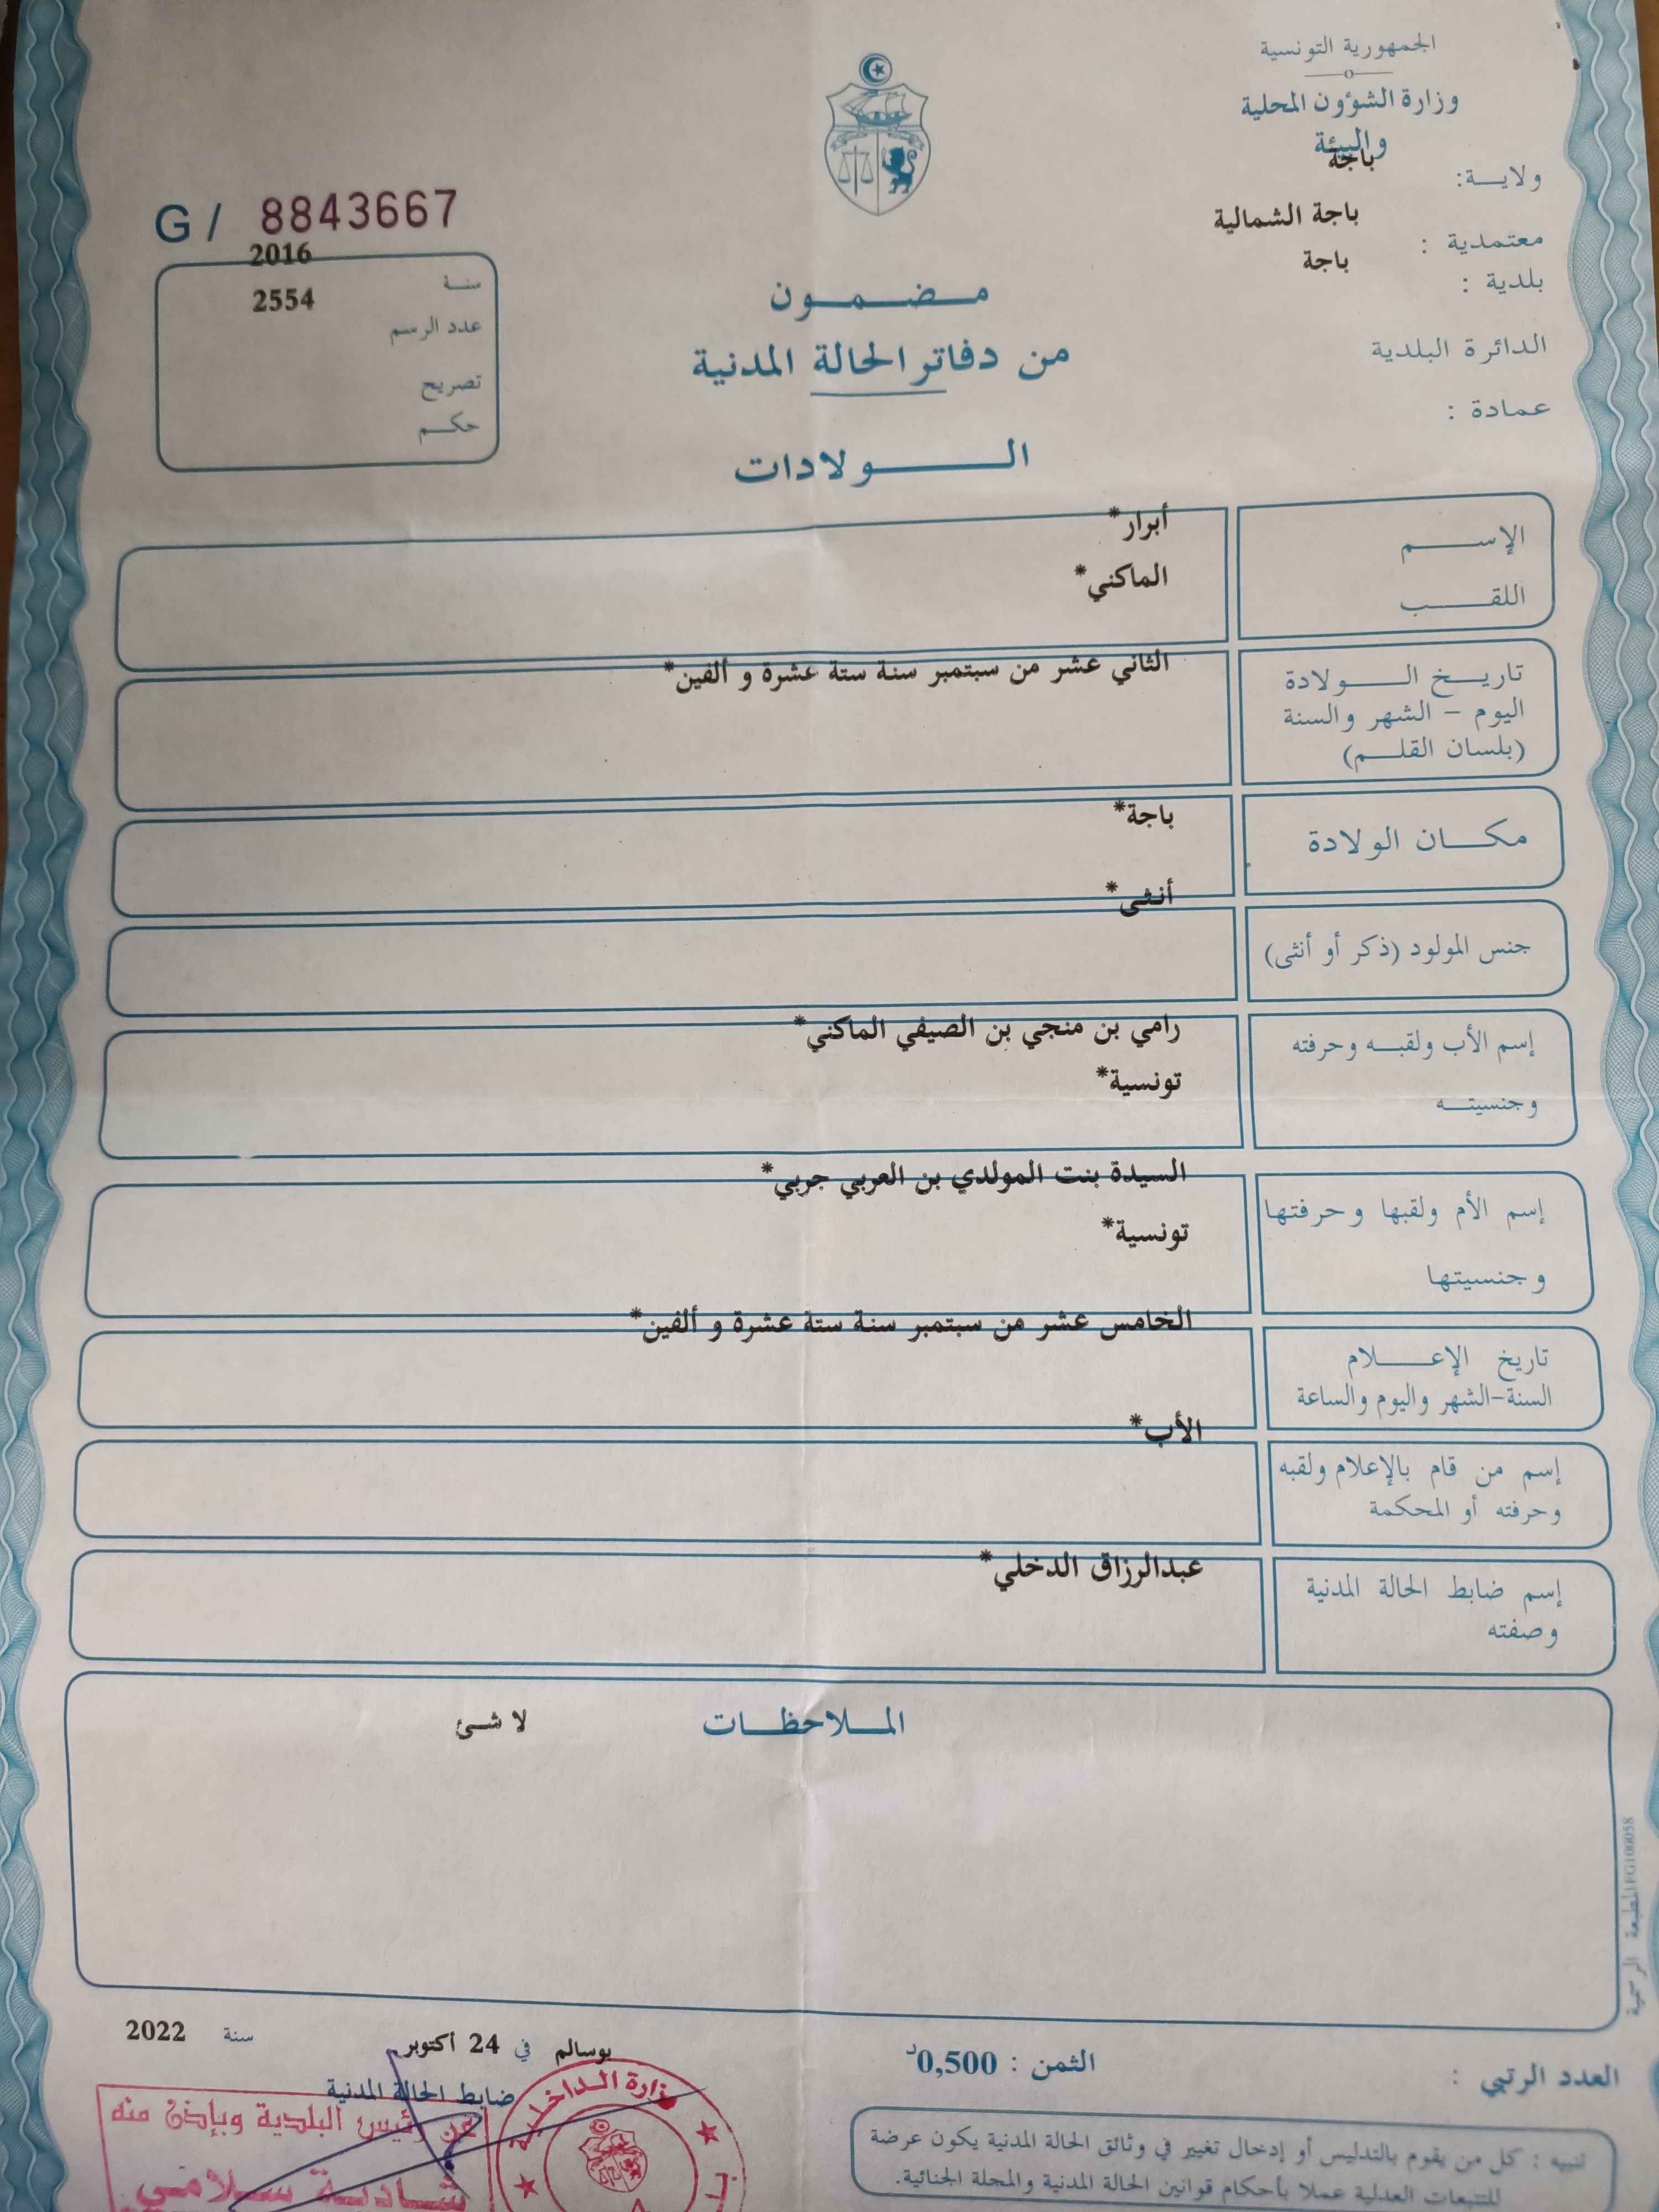 الجمهورية التونسية
وزارة الشؤون المحلية
والبيئة
ولاية: باجة
معتمدية : باجة الشمالية
بلدية : باجة
الدائرة البلدية
عمادة :
G / 8843667
سنة 2016
عدد الرسم 2554
تصريح
حكم
مضمون
من دفاتر الحالة المدنية
الولادات
الإسم أبرار*
اللقب الماكني*
تاريخ الولادة الثاني عشر من سبتمبر سنة ستة عشرة و ألفين*
اليوم - الشهر والسنة
(بلسان القلم)
مكان الولادة باجة*
جنس المولود (ذكر أو أنثى) أنثى*
إسم الأب ولقبه وحرفته رامي بن منجي بن الصيفي الماكني*
وجنسيته تونسية*
إسم الأم ولقبها وحرفتها السيدة بنت المولدي بن العربي جربي*
وجنسيتها تونسية*
تاريخ الإعلام الخامس عشر من سبتمبر سنة ستة عشرة و ألفين*
السنة-الشهر واليوم والساعة
إسم من قام بالإعلام ولقبه الأب*
وحرفته أو المحكمة
إسم ضابط الحالة المدنية عبدالرزاق الدخلي*
وصفته
الملاحظات لا شئ
المطبعة الرسمية FG100058
العدد الرتبي :
الثمن : 0,500د
بوسالم في 24 أكتوبر سنة 2022
ضابط الحالة المدنية
وزارة الداخلية
عن رئيس البلدية وبإذن منه
شادية سلامي
تنبيه : كل من يقوم بالتدليس أو إدخال تغيير في وثائق الحالة المدنية يكون عرضة
للتتبعات العدلية عملا بأحكام قوانين الحالة المدنية والمجلة الجنائية.